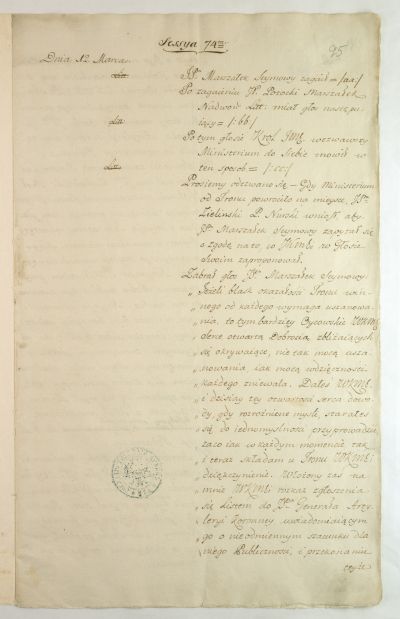 Sessya 74ta
95
Dnia 12 Marca.
Lit:
JP. Marszałek Seymowy zagaił = /:aa:/
Po zagaieniu JP. Potocki Marszałek
Nadwor: Litt: miał głos nastempu-
iący = /:bb/
Lit:
Po tym głosie Krol JMć wezwawszy
Ministerium do Siebie mowił w
ten sposob = /:cc:/
Lit:
Prosiemy odezwano się – Gdy Ministerium
od Tronu powrociło na mieysce, JP.
Zielinski P. Nurski wniosł, aby
JP. Marszałek Seymowy zapytał się
o zgodę na to, co JKMć w Głosie
Swoim zaproponował.
Zabrał głos JP. Marszałek Seymowy.
„ Jeżeli blask okazałości Tronu win-
„ nego od każdego wymaga uszanowa-
„ nia, to tym bardziey Oycowskie WKMci
„ Serce otwartą Dobrocią zbliżaiących
„ się okrywaiące, nie tak mocą usza-
„ nowania, iak mocą wdzięczności
„ każdego zniewala. Dałeś WKMć
„ i dzisiay tey otwartości serca dowo-
„ dy, gdy rozrożnione myśli, starałeś
„ się, do iednomyślności przyprowadzić,
„ za co iak w każdym momencie tak
„ i teraz składam u Tronu WKMci
„ dziękczynienie. Włożony zaś na
„ mnie WKMci rozkaz zgłoszenia
„ się Listem do JP. Generała Arty-
„ leryi Koronney uwiadomiaiącym
„ go o nieodmiennym szacunku dla
„ niego Publiczności, i przekonaniu